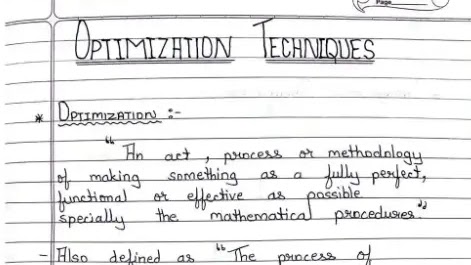 Page
OPTIMIZATION TECHNIQUES
* OPTIMIZATION :-
"An act, process or methodology
of making something as a fully perfect,
functional or effective as possible
specially the mathematical procedures."
- Also defined as "The process of